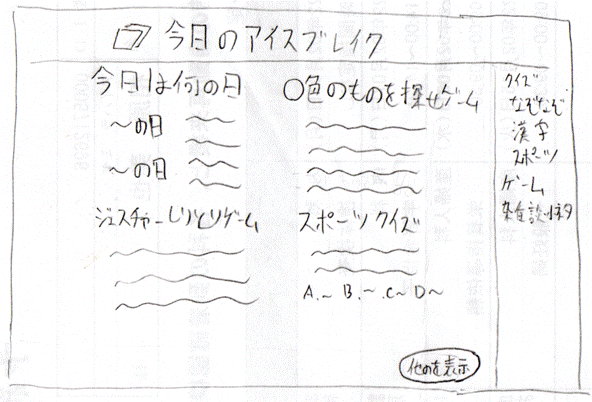 今日のアイスブレイク
今日は何の日
〜の日
〜の日
〇色のものを探せゲーム
ジェスチャーしりとりゲーム
スポーツクイズ
A.〜 B.〜 C〜 D〜
他のを表示
クイズ
なぞなぞ
漢字
スポーツ
ゲーム
雑談ネタ